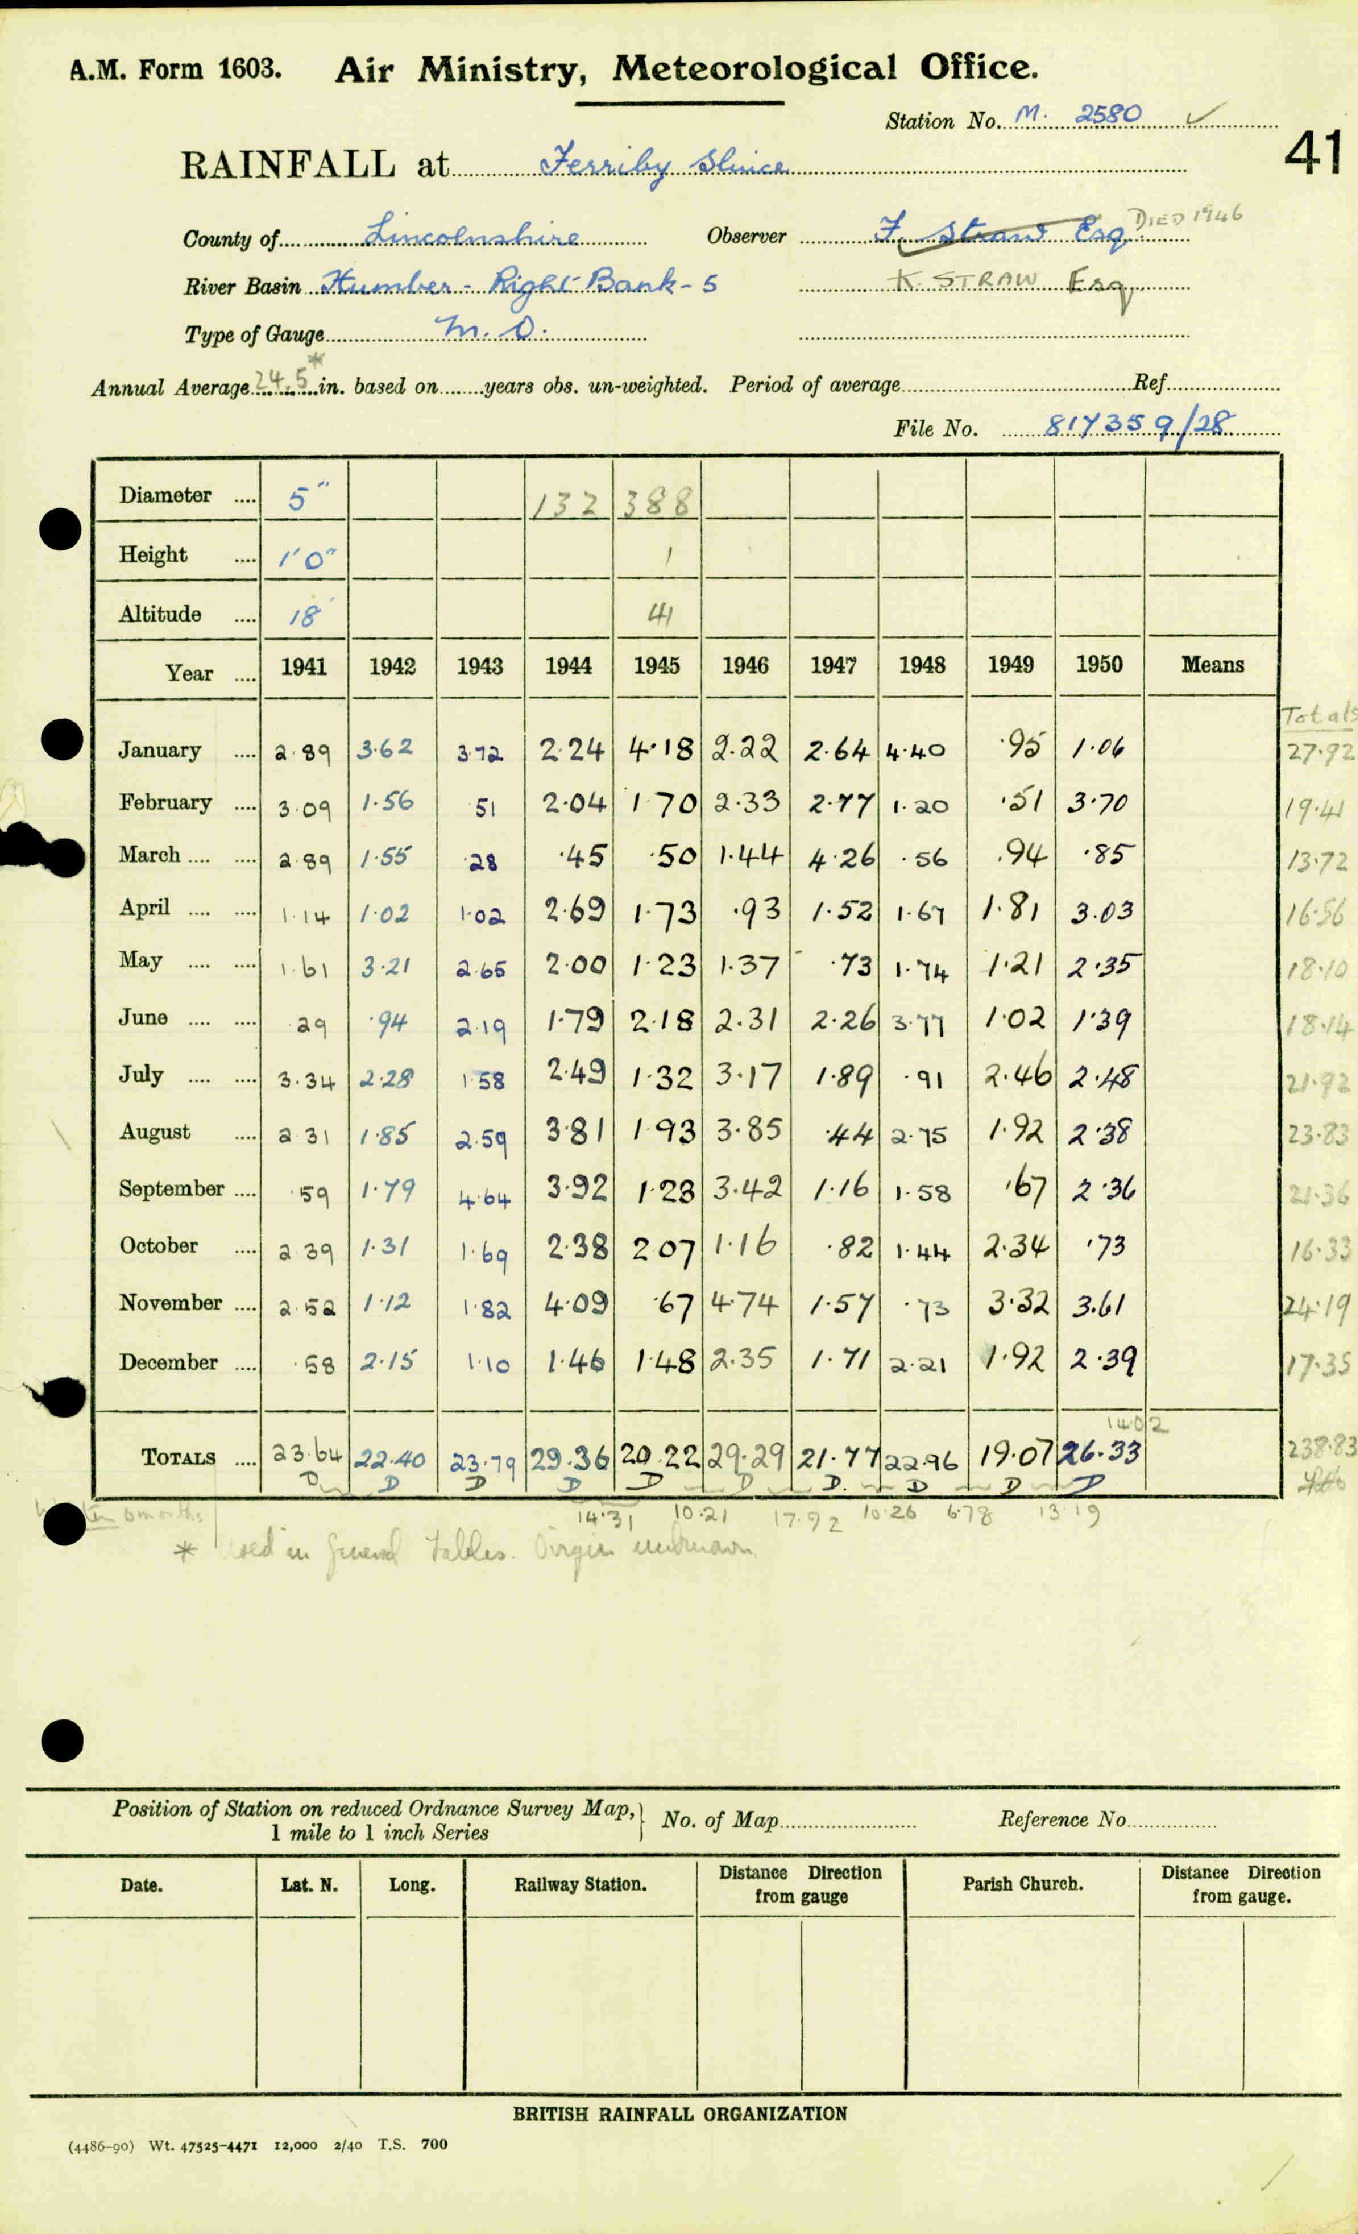 A.M. Form 1603. Air Ministry, Meteorological Office.
Station No. M. 2580 ✓
41
RAINFALL at Ferriby Sluice
County of Lincolnshire Observer F. Straw Esq DIED 1946
River Basin Humber - Right Bank - 5 K. STRAW Esq
Type of Gauge M.O.
Annual Average 24.5* in. based on years obs. un-weighted. Period of average Ref
File No. 817359/28
Diameter .... 5" 132 388
Height .... 1'0" 1
Altitude .... 18' 41
Year .... 1941 1942 1943 1944 1945 1946 1947 1948 1949 1950 Means
Totals
January .... 2.89 3.62 3.72 2.24 4.18 2.22 2.64 4.40 .95 1.06 27.92
February .... 3.09 1.56 .51 2.04 1.70 2.33 2.77 1.20 .51 3.70 19.41
March .... .... 2.89 1.55 .28 .45 .50 1.44 4.26 .56 .94 .85 13.72
April .... .... 1.14 1.02 1.02 2.69 1.73 .93 1.52 1.67 1.81 3.03 16.56
May .... .... 1.61 3.21 2.65 2.00 1.23 1.37 .73 1.74 1.21 2.35 18.10
June .... .... .29 .94 2.19 1.79 2.18 2.31 2.26 3.77 1.02 1.39 18.14
July .... .... 3.34 2.28 1.58 2.49 1.32 3.17 1.89 .91 2.46 2.48 21.92
August .... 2.31 1.85 2.59 3.81 1.93 3.85 .44 2.75 1.92 2.38 23.83
September .... .59 1.79 4.64 3.92 1.23 3.42 1.16 1.58 .67 2.36 21.36
October .... 2.39 1.31 1.69 2.38 2.07 1.16 .82 1.44 2.34 .73 16.33
November .... 2.52 1.12 1.82 4.09 .67 4.74 1.57 .73 3.32 3.61 24.19
December .... .58 2.15 1.10 1.46 1.48 2.35 1.71 2.21 1.92 2.39 17.35
14.02
TOTALS .... 23.64 22.40 23.79 29.36 20.22 29.29 21.77 22.96 19.07 26.33 238.83
D D D D D D D. D D D
6 months 14.31 10.21 17.92 10.26 6.78 13.19
* Used in General Tables. Origin unknown
Position of Station on reduced Ordnance Survey Map, 1 mile to 1 inch Series No. of Map Reference No.
Date. Lat. N. Long. Railway Station. Distance Direction from gauge Parish Church. Distance Direction from gauge.
BRITISH RAINFALL ORGANIZATION
(4486-90) Wt. 47525-4471 12,000 2/40 T.S. 700